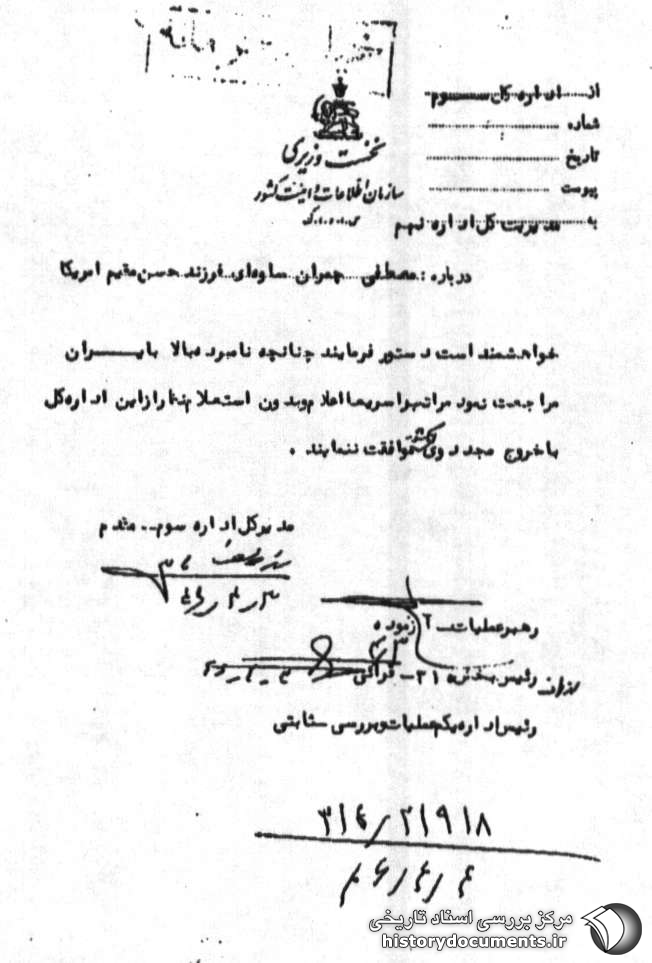 از اداره کل سوم
شماره
تاریخ
پیوست
نخست وزیری
سازمان اطلاعات و امنیت کشور
س.ا.و.ا.ک
به مدیریت کل اداره نهم
درباره : مصطفی چمران ساوه‌ای فرزند حسن مقیم امریکا
خواهشمند است دستور فرمایند چنانچه نامبرده بالا بایران
مراجعت نمود مراتب را سریعا اعلام و بدون استعلام از این اداره کل
با خروج مجدد وی موافقت ننمایند .
مدیرکل اداره سوم . مقدم
رهبر عملیات ـ آزموده
رئیس بخش ۳۱۲
رئیس اداره یکم عملیات و بررسی ـ ثابتی
۳۱۴/۲۱۹۱۸
مرکز بررسی اسناد تاریخی
historydocuments.ir